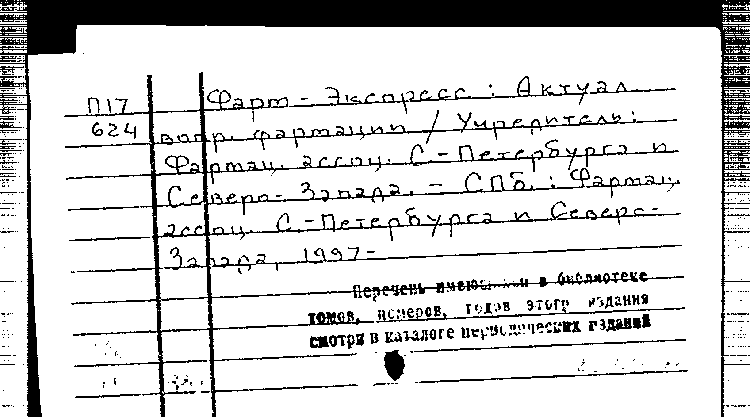 П17
624
Фарм-Экспресс : Актуал.
вопр. фармации / Учредитель:
Фармац. ассоц. С-Петербурга и
Северо-Запада. - СПб. : Фармац.
ассоц. С.-Петербурга и Северо-
Запада, 1997-
Перечень имеющихся в библиотеке
томов, номеров, годов этого издания
смотри в каталоге периодических изданий